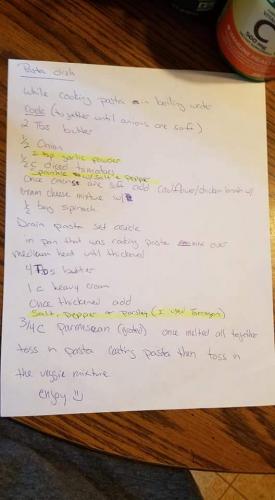 C
500 mg
Pasta dish
While cooking pasta in boiling water
Cook (together until onions are soft)
2 Tbs butter
1/2 Onion
1 tsp garlic powder
1/2 c diced tomatoes
Sprinkle w/ salt & pepper
Once onions are soft add cauliflower/chicken broth w/
cream cheese mixture w/
1/2 bag spinach
Drain pasta set aside
in pan that was cooking pasta mix over
medium heat until thickened
4 Tbs butter
1 c heavy cream
Once thickened add
Salt, pepper or parsley (I used Tarragon)
3/4 C parmesean (grated) once melted all together
toss in pasta coating pasta then toss in
the veggie mixture
enjoy